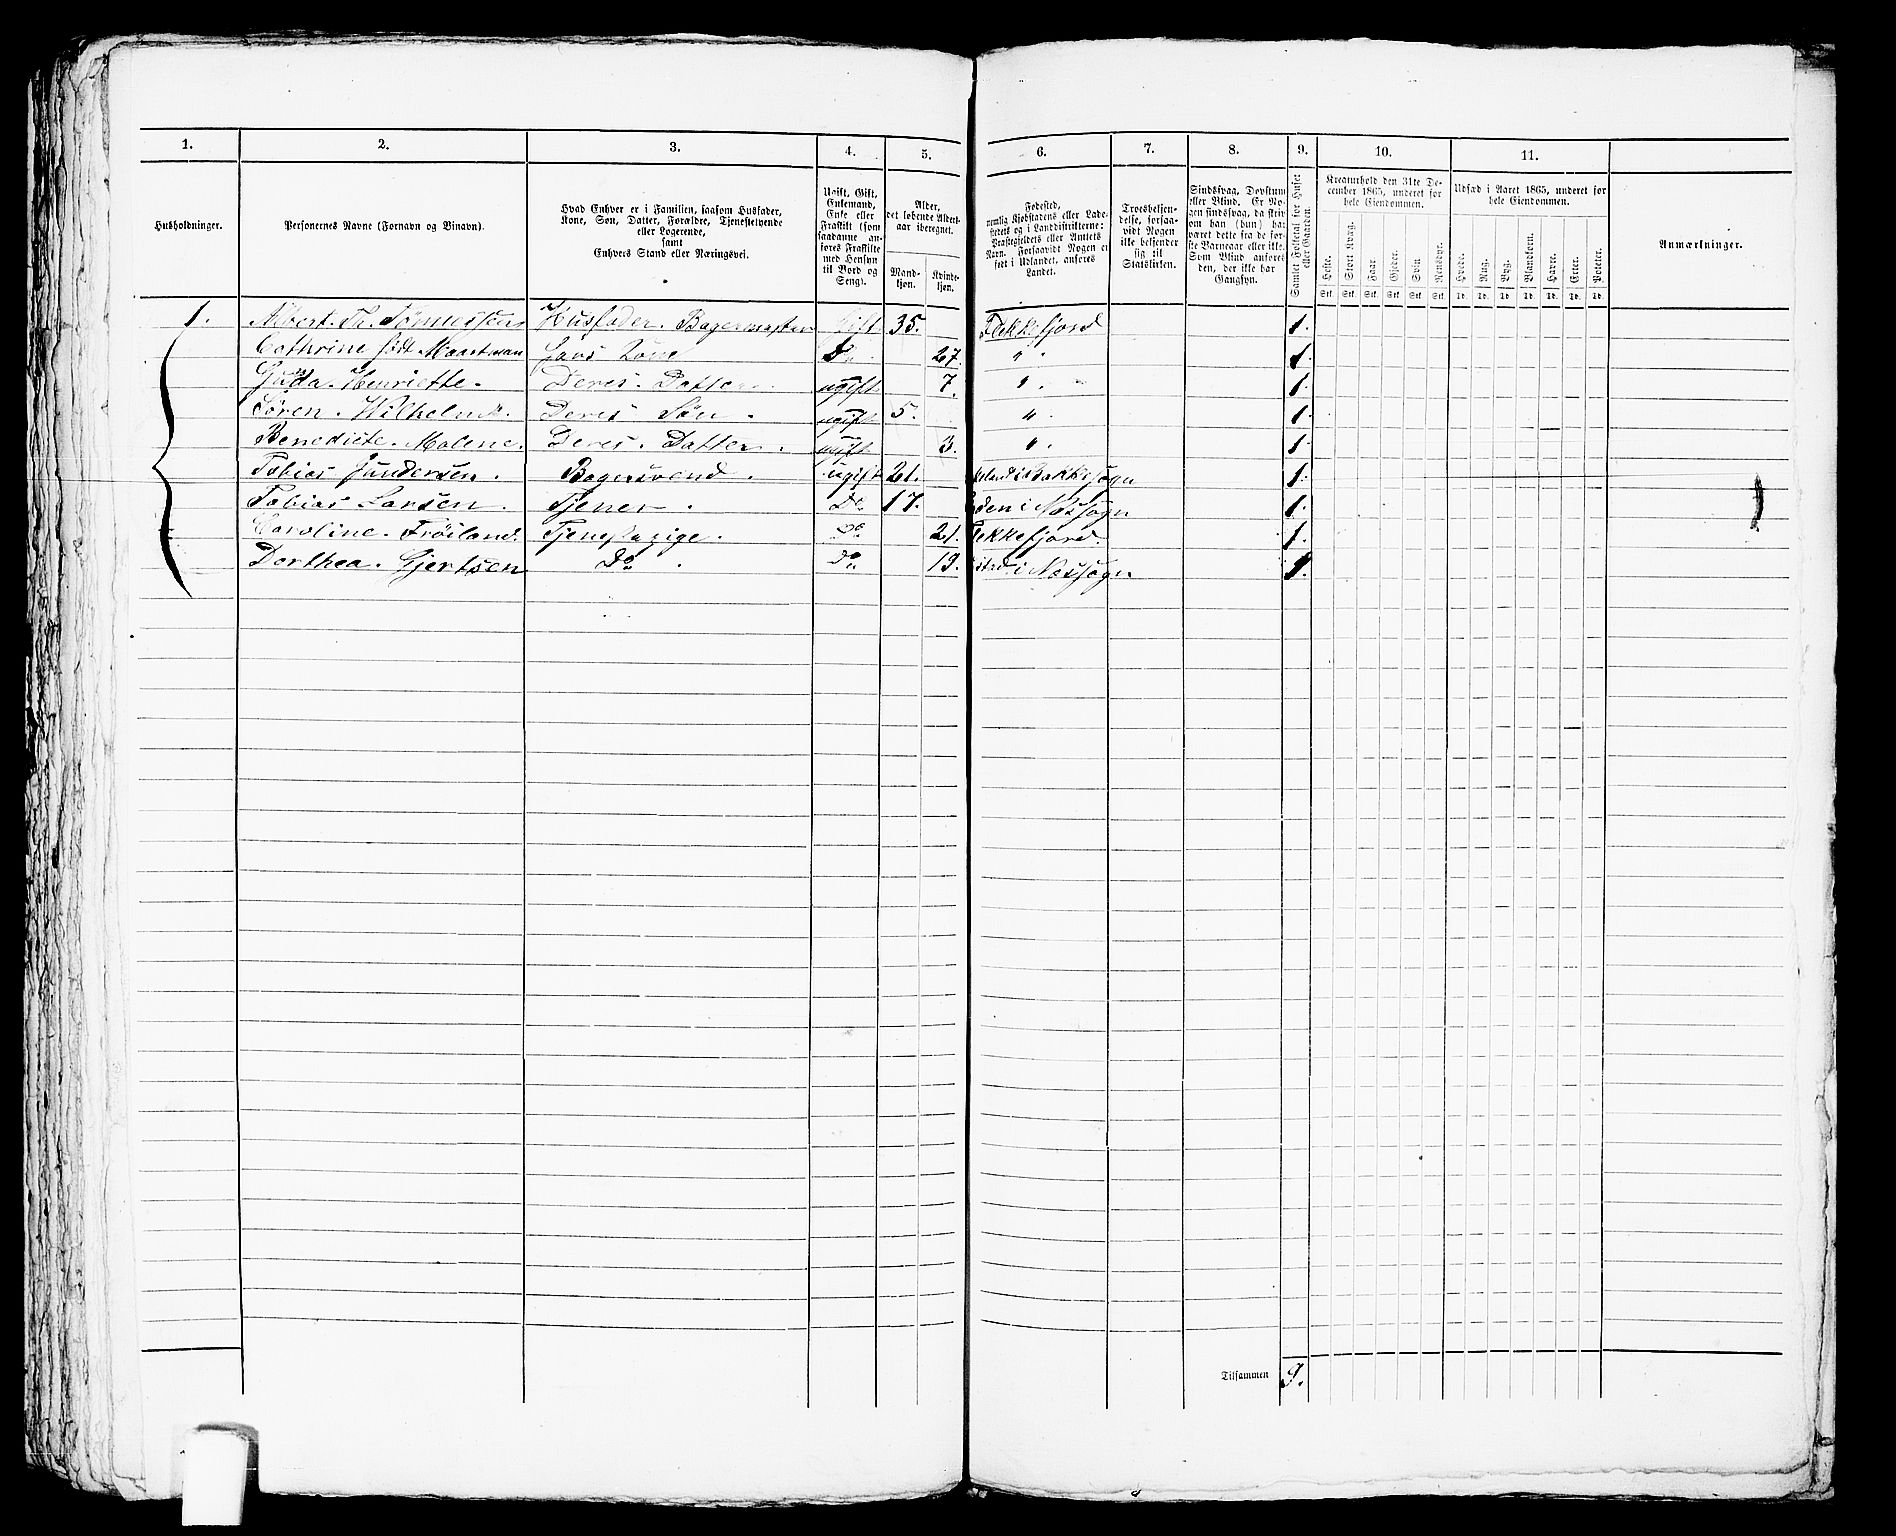 1. 2. 3. 4. 5. 6. 7. 8. 9. 10. 11.
Husholdninger.
Personernes Navne (Fornavn og Binavn).
Hvad Enhver er i Familien, saasom Husfader,
Kone, Søn, Datter, Forældre, Tjenestetyende
eller Logerende,
samt
Enhvers Stand eller Næringsvei.
Ugift, Gift,
Enkemand,
Enke eller
Fraskilt (som
saadanne an-
føres Fraskilte
med Hensyn
til Bord og
Seng).
Alder,
det løbende Alders-
aar iberegnet.
Mand-
kjøn.
Kvinde-
kjøn.
Fødested,
nemlig Kjøbstadens eller Lade-
stedets og i Landdistrikterne:
Præstegjeldets eller Amtets
Navn. Forsaavidt Nogen er
født i Udlandet, anføres
Landet.
Troesbekjen-
delse, forsaa-
vidt Nogen
ikke bekjender
sig til
Statskirken.
Sindssvag, Døvstum
eller Blind. Er No-
gen sindssvag, da skriv
om han (hun) har
været dette fra de før-
ste Barneaar eller ikke.
Som Blind anføres
den, der ikke har
Gangsyn.
Samlet Folketal for Huset
eller Gaarden.
Kreaturhold den 31te De-
cember 1865, underet for
hele Eiendommen.
Heste. Stort Kvæg. Faar. Gjeder. Svin. Rensdyr.
Stk. Stk. Stk. Stk. Stk. Stk.
Udsæd i Aaret 1865, underet for
hele Eiendommen.
Hvede. Rug. Byg. Blandkorn. Havre. Erter. Poteter.
Td. Td. Td. Td. Td. Td. Td.
Anmærkninger.
1. Albert. Th. Husfader. Bagermester Gift 35. Flekkefjord 1.
Cathrine født Hans Kone Do. 27. " 1.
Henriette. Deres. Datter. ugift. 7. " 1.
Søren. Deres Søn. ugift 5. " 1.
Benedicte. Malene. Deres. Datter. ugift 3. " 1.
Tobias Bagersvend. ugift 21. i Bakkesogn 1.
Tobias Larsen. Tjener. Do 17. i Næssogn 1.
Caroline. Frøiland. Tjenestepige. Do 21. Flekkefjord. 1.
Dorthea. Gjertsen Do. Do. 19. i Næssogn 1.
Tilsammen 9.